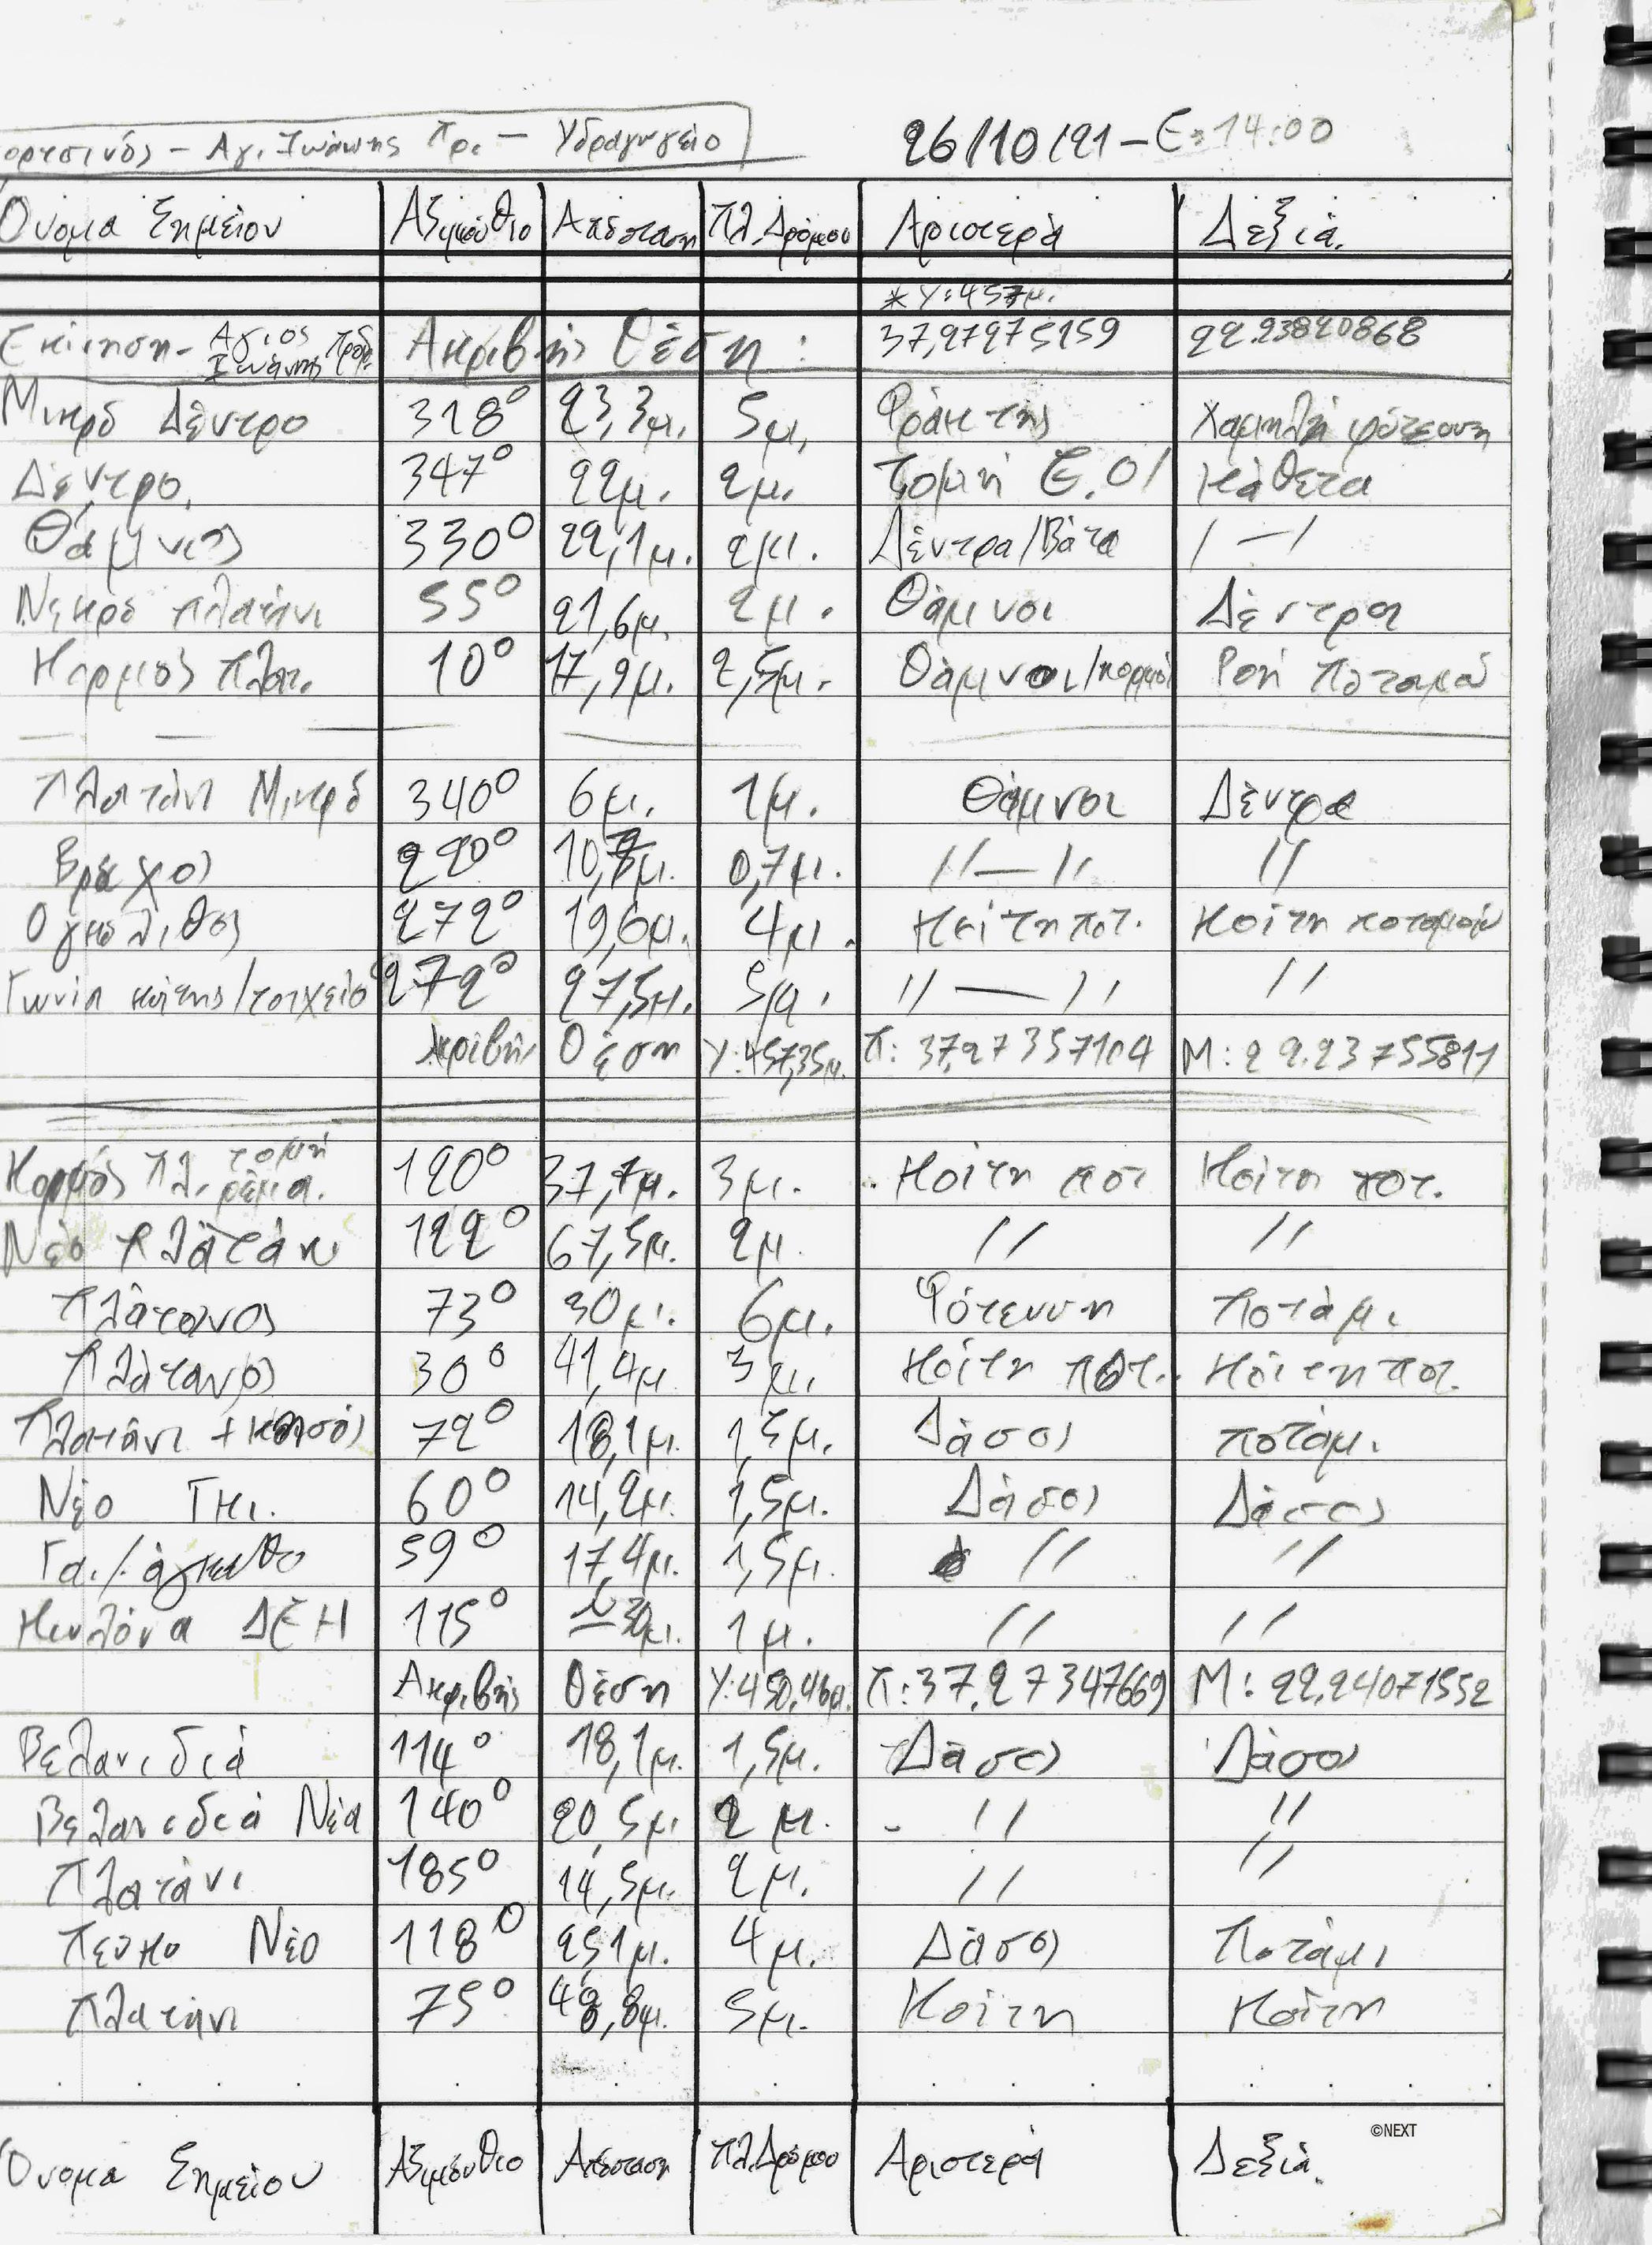 ορτσινός – Αγ. Ιωάννης Πρ. – Υδραγωγείο 26/10/21 – Ε: 14:00
Όνομα Σημείου Αζιμούθιο Απόσταση Πλ. Δρόμου Αριστερά Δεξιά.
* Υ: 457μ.
Εκίνηση - Άγιος Ιωάννης Πρόδ. Ακριβής Θέση: 37,27275159 22.23820868
Μικρό Δέντρο 318° 23,3μ. 5μ. Φράκτης Χαμηλή φύτευση
Δέντρο, 347° 22μ. 2μ. Τομή Ε.Ο/ Κάθετα
Θάμνος 330° 22,1μ. 2μ. Δέντρα/Βάτα / — /
Νεκρό πλατάνι 55° 21,6μ. 2μ. Θάμνοι Δέντρα
Κορμός πλατ. 10° 17,9μ. 2,5μ. Θάμνοι/κορμοί Ροή Ποταμού
Πλατάνι Μικρό 340° 6μ. 1μ. Θάμνοι Δέντρα
Βράχος 220° 0,7μ. // — // //
Ογκόλιθος 272° 19,6μ. 4μ. Κοίτη ποτ. Κοίτη ποταμού
Γωνία κοίτης/τοιχείο 272° 27,5μ. 5μ. // — // //
Ακριβής Θέση Υ: 457,35μ. Π: 37,27357104 Μ: 22.23755811
Κορμός Πλ. τομή ρέμα. 120° 37,7μ. 3μ. Κοίτη ποτ Κοίτη ποτ.
Νέο πλατάνι 122° 67,5μ. 2μ. // //
Πλάτανος 73° 30μ. 6μ. Φύτευση Ποτάμι
Πλάτανος 30° 41,4μ 3μ. Κοίτη ποτ. Κοίτη ποτ.
Πλατάνι + κισσός 72° 18,1μ. 1,5μ. Δάσος ποτάμι
Νέο Γκι. 60° 14,2μ. 1,5μ. Δάσος Δάσος
59° 17,4μ. 1,5μ. // //
Κολόνα ΔΕΗ 115° 1μ. // //
Ακριβής Θέση Υ: 450,46μ. Π: 37,27347669 Μ: 22,24071552
Βελανιδιά 114° 18,1μ. 1,5μ. Δάσος Δάσος
Βελανιδιά Νέα 140° 20,5μ. 2μ. // //
Πλατάνι 185° 14,5μ. 2μ. // //
Πεύκο Νέο 118° 25,1μ. 4μ. Δάσος Ποτάμι
Πλατάνι 75° 48,8μ. 5μ. Κοίτη Κοίτη
©NEXT
Όνομα Σημείου Αζιμούθιο Απόσταση Πλ. Δρόμου Αριστερά Δεξιά.